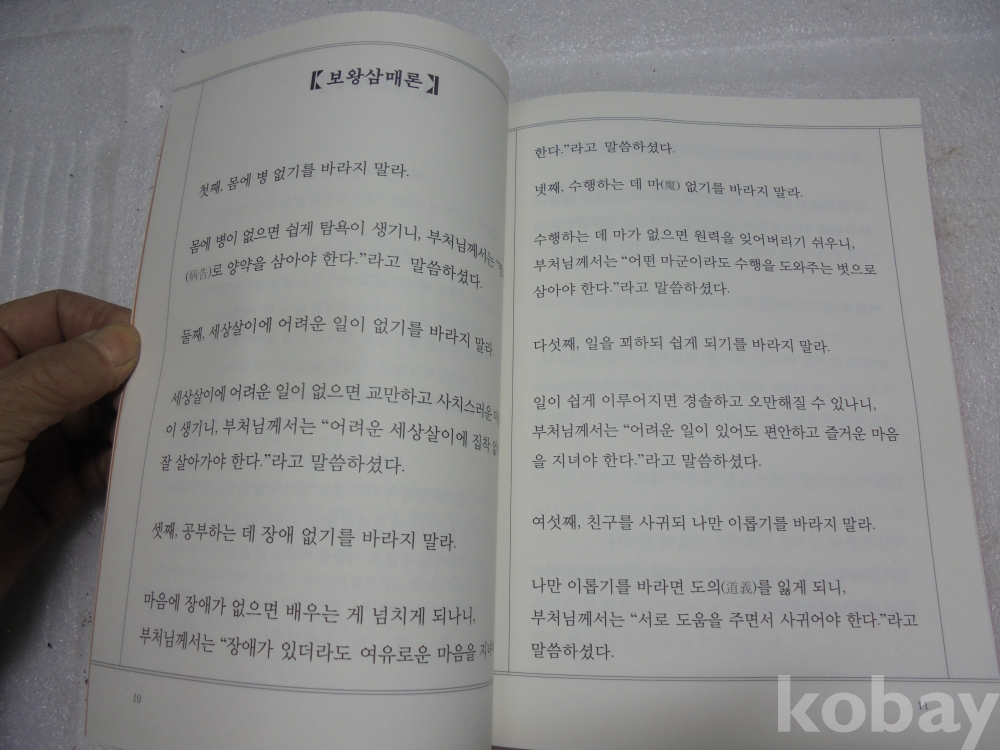 【보왕삼매론】
첫째, 몸에 병 없기를 바라지 말라.
몸에 병이 없으면 쉽게 탐욕이 생기니, 부처님께서는
(病告)로 양약을 삼아야 한다.”라고 말씀하셨다.
둘째, 세상살이에 어려운 일이 없기를 바라지 말라.
세상살이에 어려운 일이 없으면 교만하고 사치스러운
이 생기니, 부처님께서는 “어려운 세상살이에 집착
잘 살아가야 한다.”라고 말씀하셨다.
셋째, 공부하는 데 장애 없기를 바라지 말라.
마음에 장애가 없으면 배우는 게 넘치게 되나니,
부처님께서는 “장애가 있더라도 여유로운 마음을
10
한다.”라고 말씀하셨다.
넷째, 수행하는 데 마(魔) 없기를 바라지 말라.
수행하는 데 마가 없으면 원력을 잊어버리기 쉬우니,
부처님께서는 “어떤 마군이라도 수행을 도와주는 벗으로
삼아야 한다.”라고 말씀하셨다.
다섯째, 일을 꾀하되 쉽게 되기를 바라지 말라.
일이 쉽게 이루어지면 경솔하고 오만해질 수 있나니,
부처님께서는 “어려운 일이 있어도 편안하고 즐거운 마음
을 지녀야 한다.”라고 말씀하셨다.
여섯째, 친구를 사귀되 나만 이롭기를 바라지 말라.
나만 이롭기를 바라면 도의(道義)를 잃게 되니,
부처님께서는 “서로 도움을 주면서 사귀어야 한다.”라고
말씀하셨다.
11
kobay